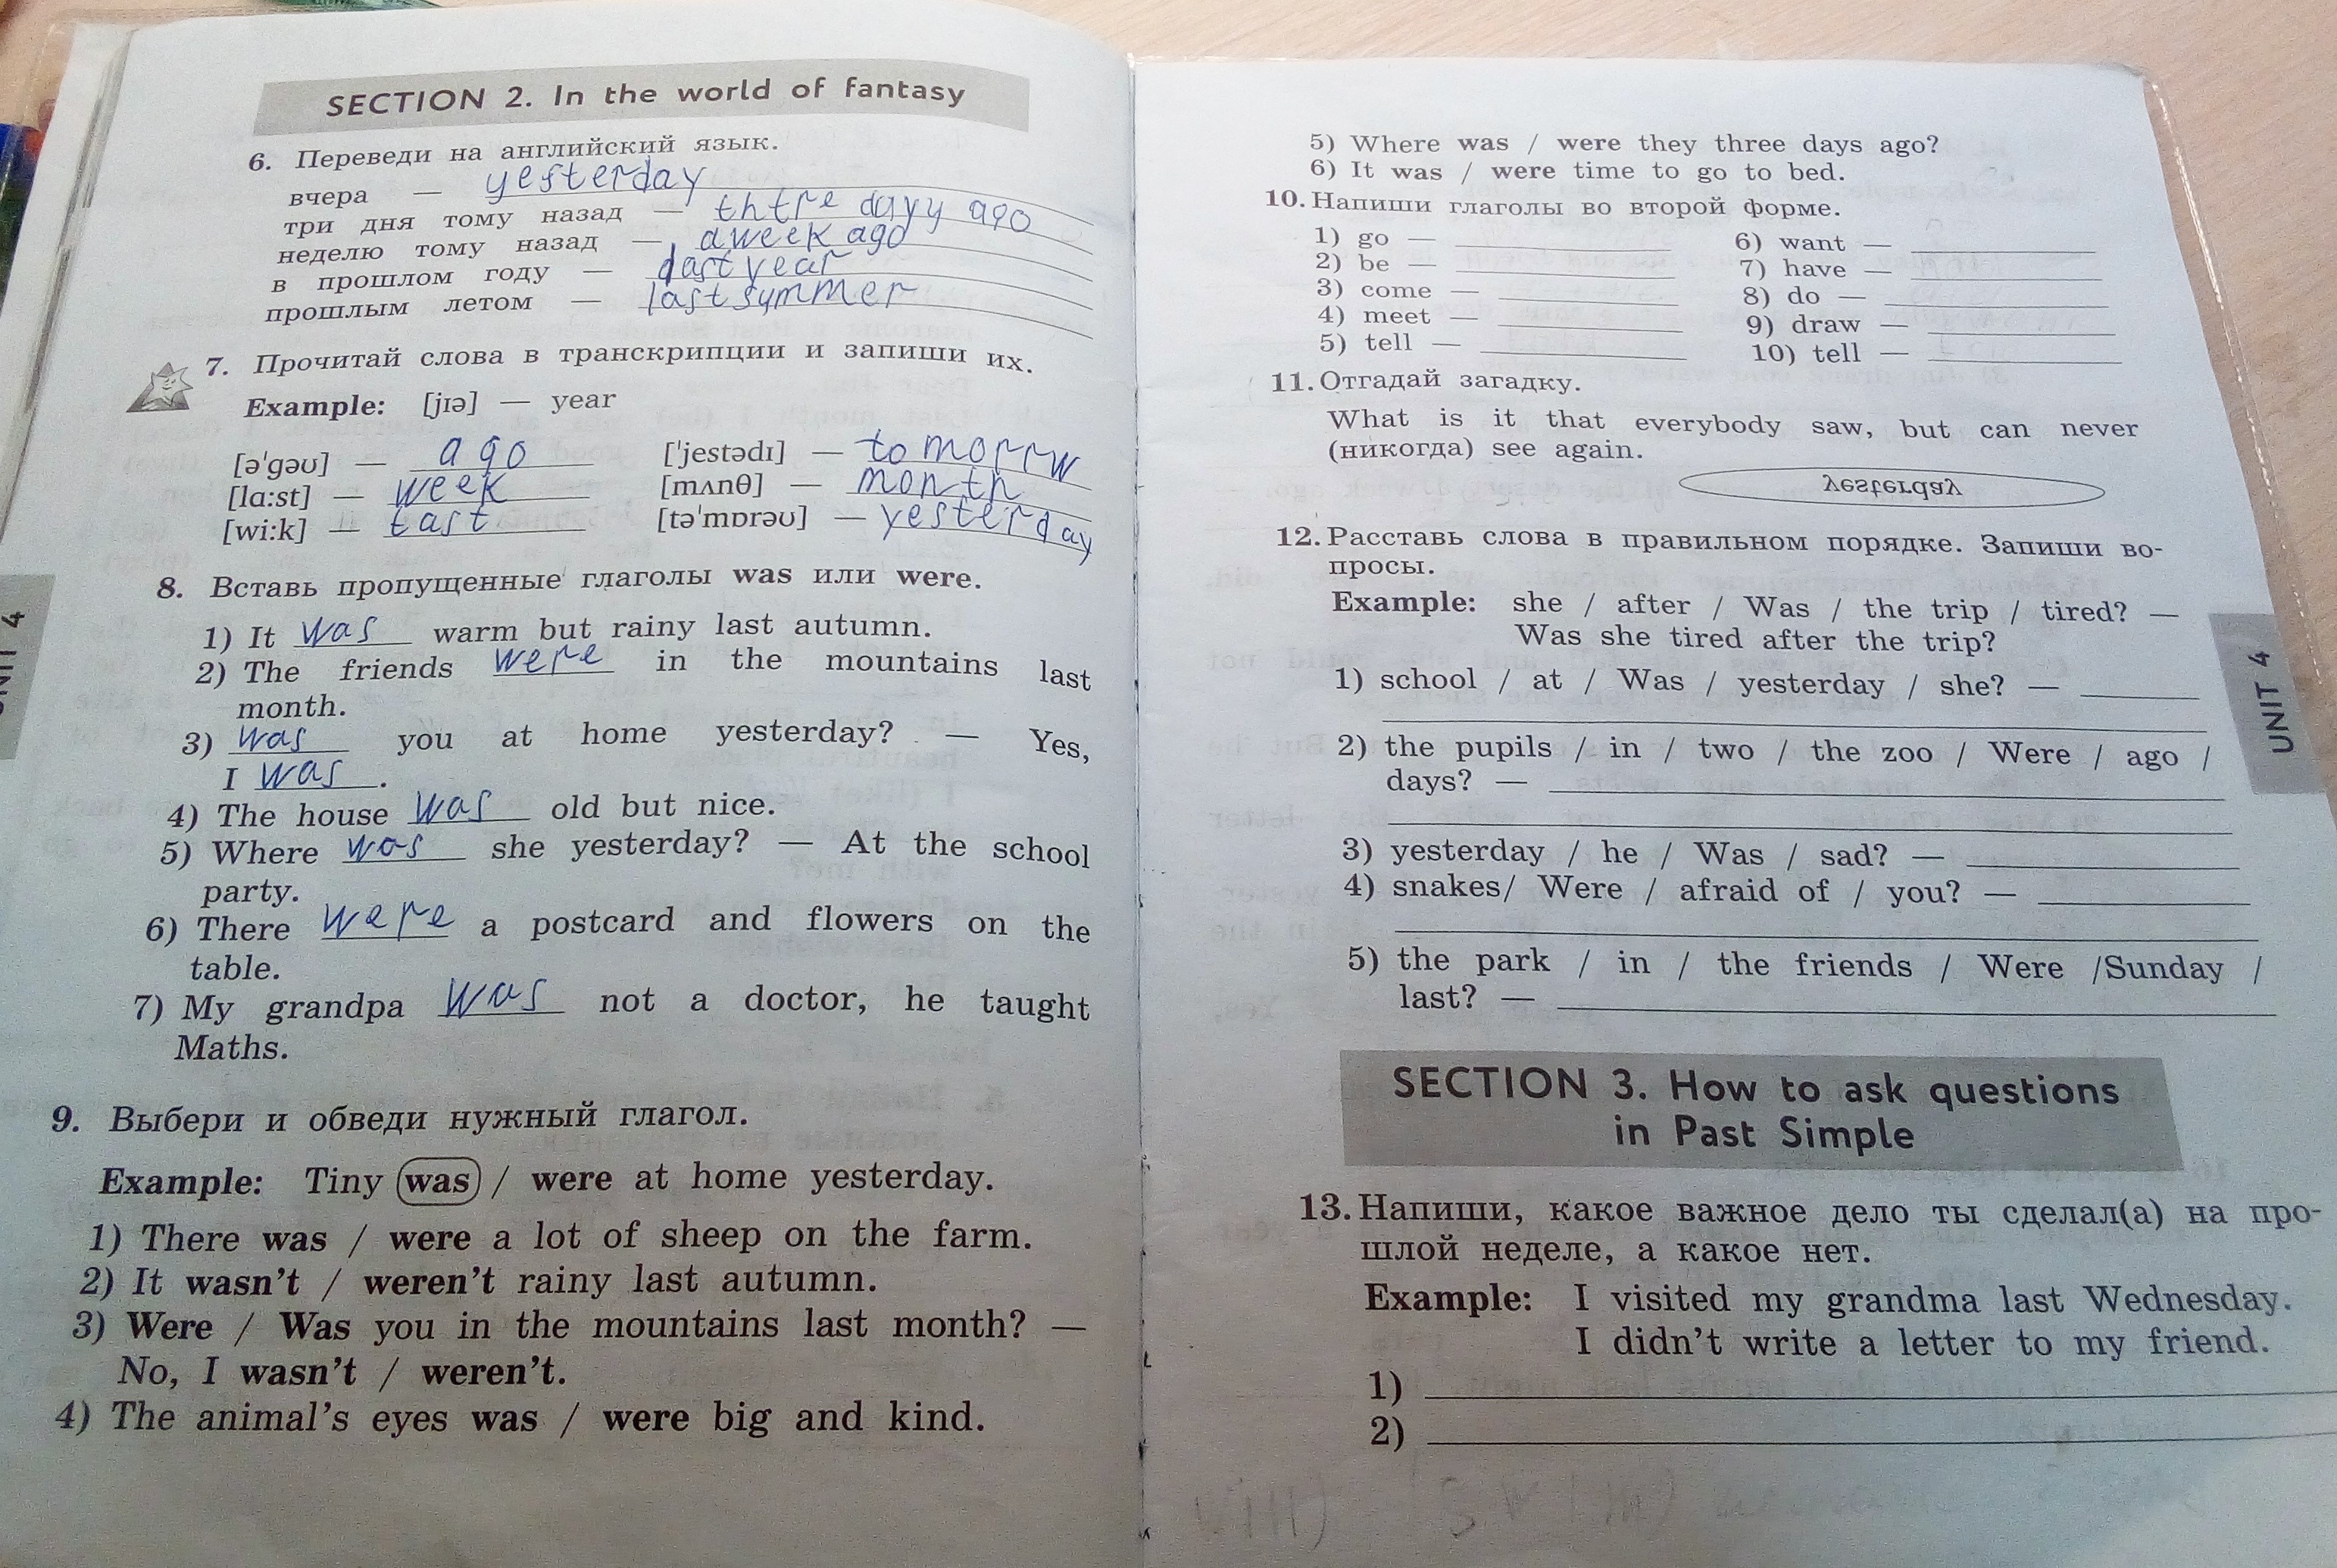 SECTION 2. In the world of fantasy
6. Переведи на английский язык.
вчера — yesterday
три дня тому назад — thtre dayy ago
неделю тому назад — a week ago
в прошлом году — last year
прошлым летом — last symmer
7. Прочитай слова в транскрипции и запиши их.
Example: [jɪə] — year
[ə'gəʊ] — ago ['jestədɪ] — tomorrw
[lɑːst] — week [mʌnθ] — month
[wiːk] — tast [tə'mɒrəʊ] — yesterday
8. Вставь пропущенные глаголы was или were.
1) It was warm but rainy last autumn.
2) The friends were in the mountains last
month.
3) was you at home yesterday? — Yes,
I was.
4) The house was old but nice.
5) Where was she yesterday? — At the school
party.
6) There were a postcard and flowers on the
table.
7) My grandpa was not a doctor, he taught
Maths.
9. Выбери и обведи нужный глагол.
Example: Tiny was / were at home yesterday.
1) There was / were a lot of sheep on the farm.
2) It wasn't / weren't rainy last autumn.
3) Were / Was you in the mountains last month? —
No, I wasn't / weren't.
4) The animal's eyes was / were big and kind.
5) Where was / were they three days ago?
6) It was / were time to go to bed.
10. Напиши глаголы во второй форме.
1) go — 6) want —
2) be — 7) have —
3) come — 8) do —
4) meet — 9) draw —
5) tell — 10) tell —
11. Отгадай загадку.
What is it that everybody saw, but can never
(никогда) see again.
yesterday
12. Расставь слова в правильном порядке. Запиши во-
просы.
Example: she / after / Was / the trip / tired? —
Was she tired after the trip?
1) school / at / Was / yesterday / she? —
2) the pupils / in / two / the zoo / Were / ago /
days? —
3) yesterday / he / Was / sad? —
4) snakes/ Were / afraid of / you? —
5) the park / in / the friends / Were /Sunday /
last? —
UNIT 4
SECTION 3. How to ask questions
in Past Simple
13. Напиши, какое важное дело ты сделал(а) на про-
шлой неделе, а какое нет.
Example: I visited my grandma last Wednesday.
I didn't write a letter to my friend.
1)
2)